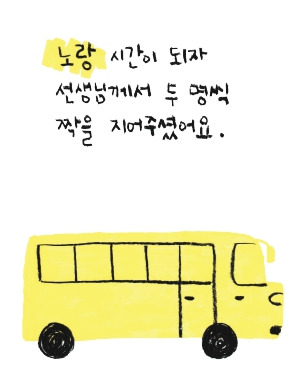 노랑 시간이 되자
선생님께서 두 명씩
짝을 지어주셨어요.